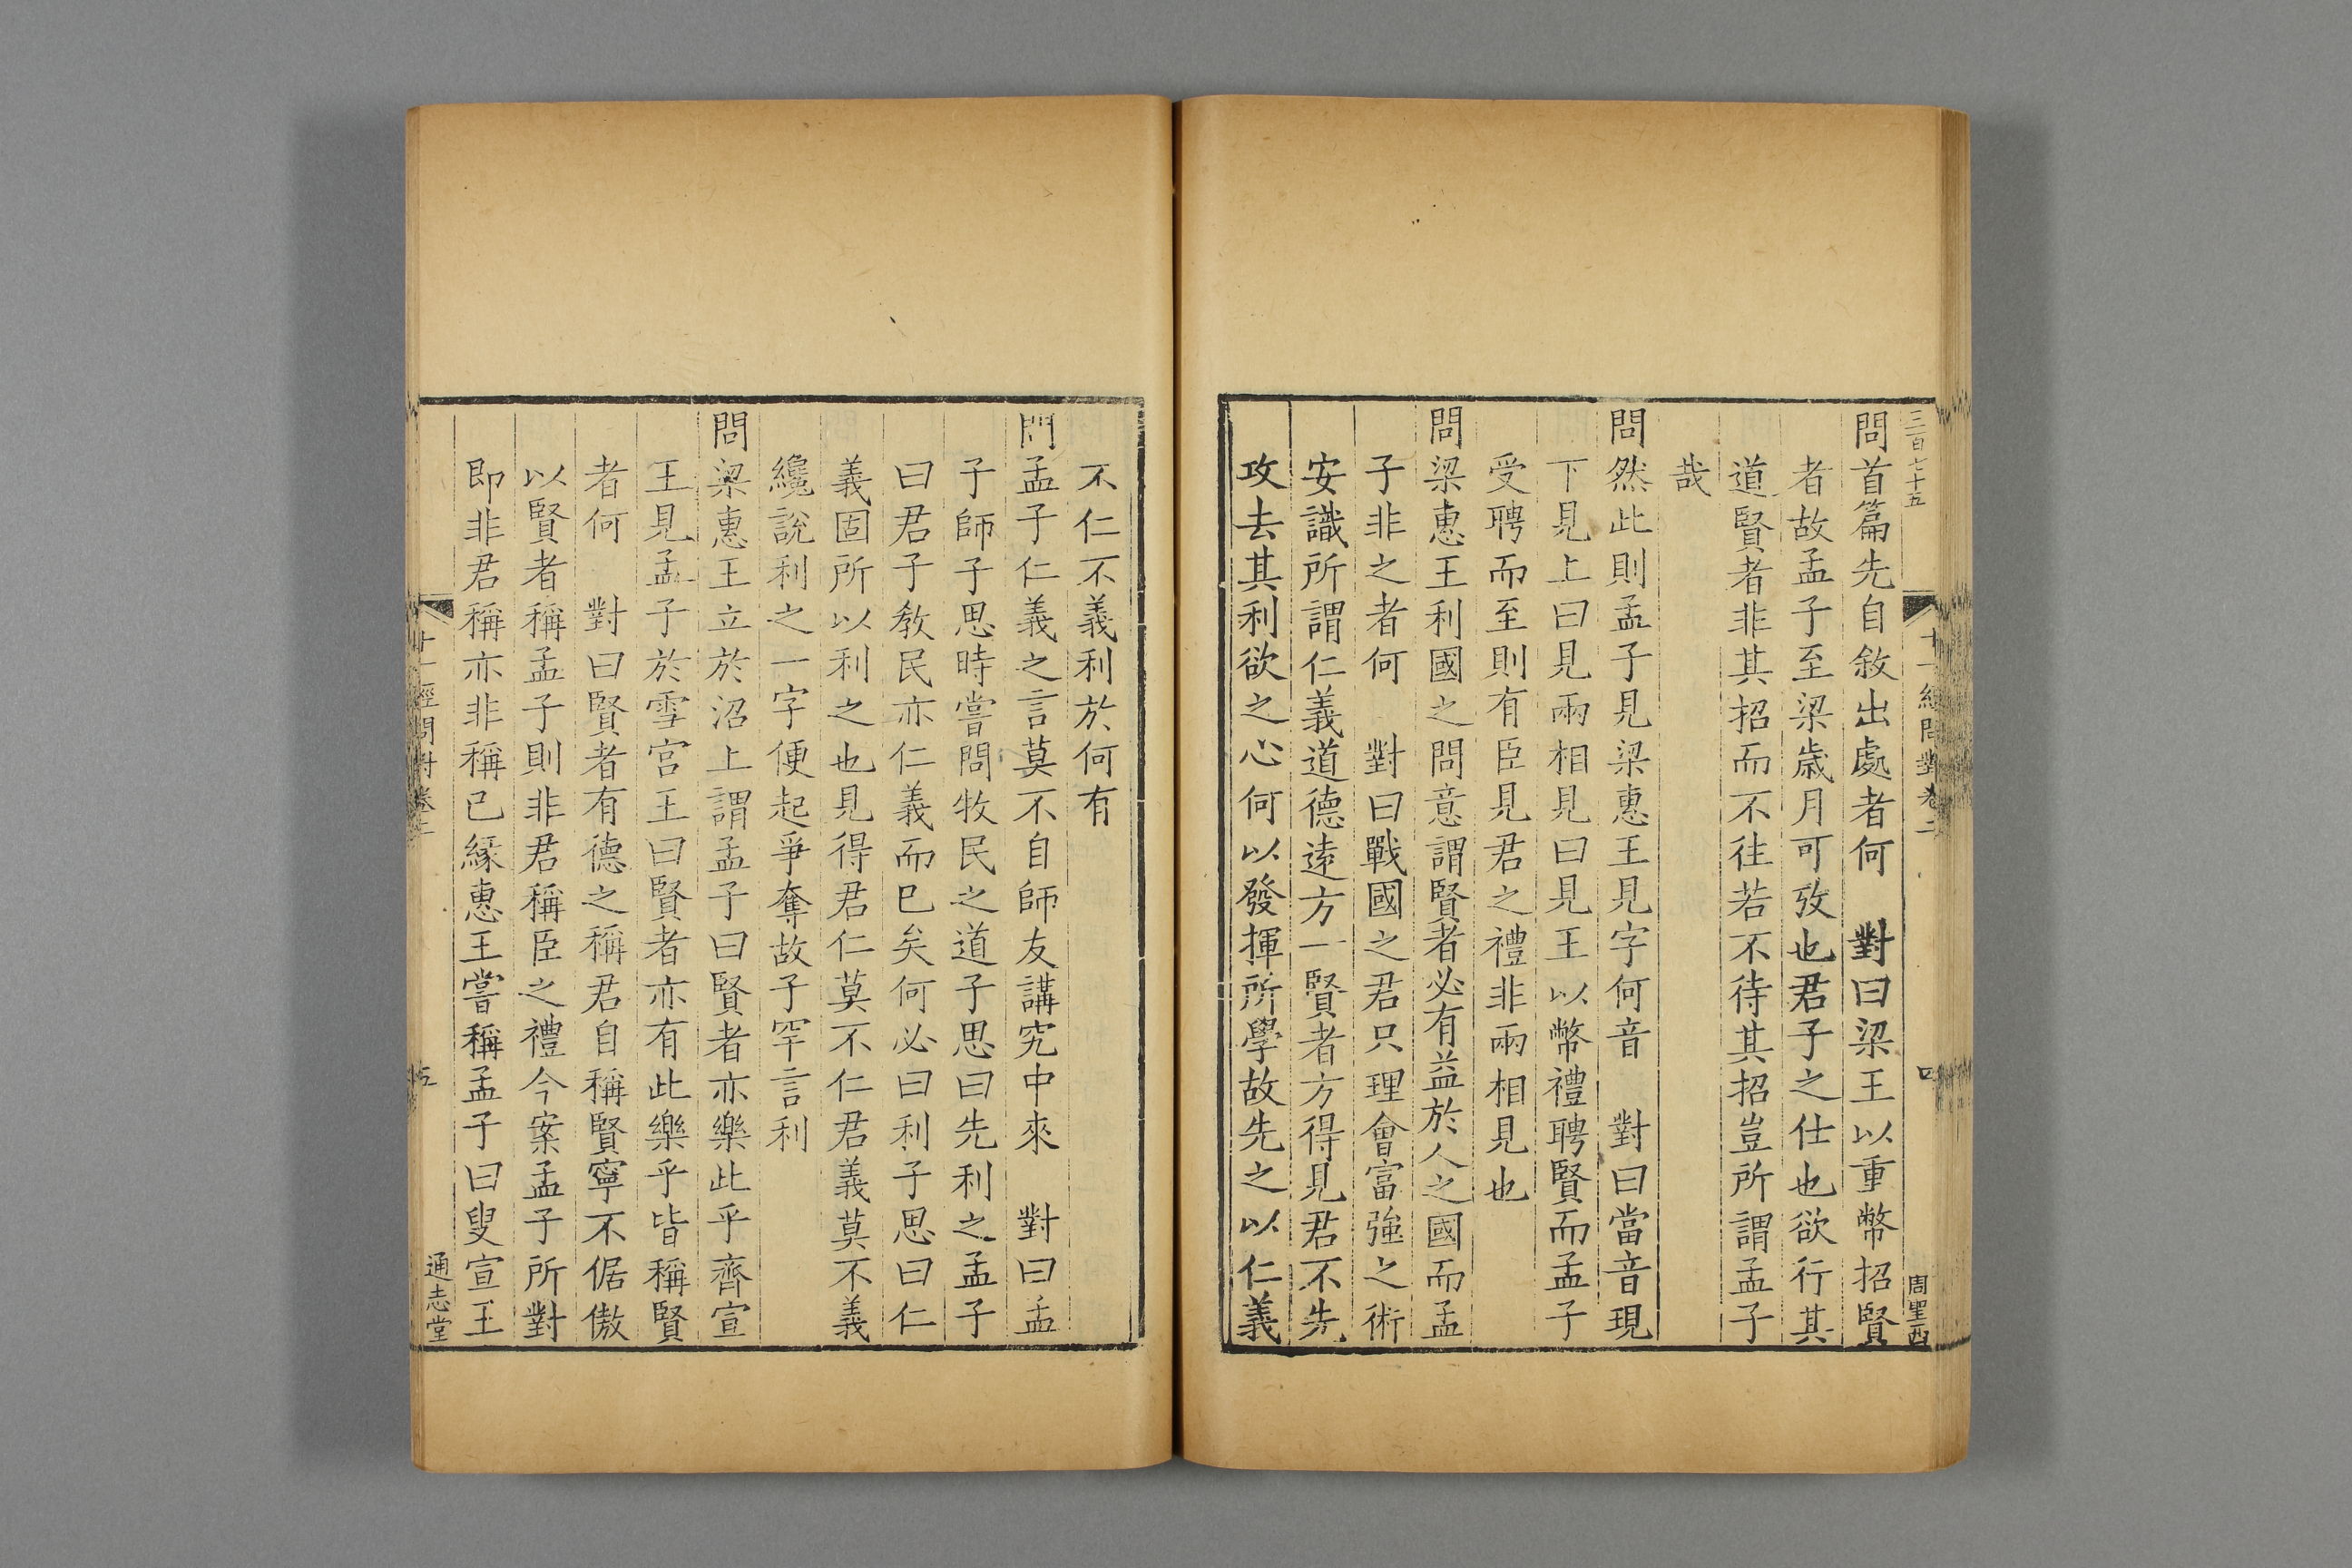 三百七十五
十一經問對卷二
四
周聖西
問首篇先自敘出處者何　對曰梁王以重幣招賢
者故孟子至梁歲月可攷也君子之仕也欲行其
道賢者非其招而不往若不待其招豈所謂孟子
哉
問然此則孟子見梁惠王見字何音　對曰當音現
下見上曰見兩相見曰見王以幣禮聘賢而孟子
受聘而至則有臣見君之禮非兩相見也
問梁惠王利國之問意謂賢者必有益於人之國而孟
子非之者何　對曰戰國之君只理會富強之術
安識所謂仁義道德遠方一賢者方得見君不先
攻去其利欲之心何以發揮所學故先之以仁義
不仁不義利於何有
問孟子仁義之言莫不自師友講究中來　對曰孟
子師子思時嘗問牧民之道子思曰先利之孟子
曰君子教民亦仁義而已矣何必曰利子思曰仁
義固所以利之也見得君仁莫不仁君義莫不義
纔說利之一字便起爭奪故子罕言利
問梁惠王立於沼上謂孟子曰賢者亦樂此乎齊宣
王見孟子於雪宮王曰賢者亦有此樂乎皆稱賢
者何　對曰賢者有德之稱君自稱賢寧不倨傲
以賢者稱孟子則非君稱臣之禮今案孟子所對
即非君稱亦非稱已緣惠王嘗稱孟子曰叟宣王
十一經問對卷二
五
通志堂